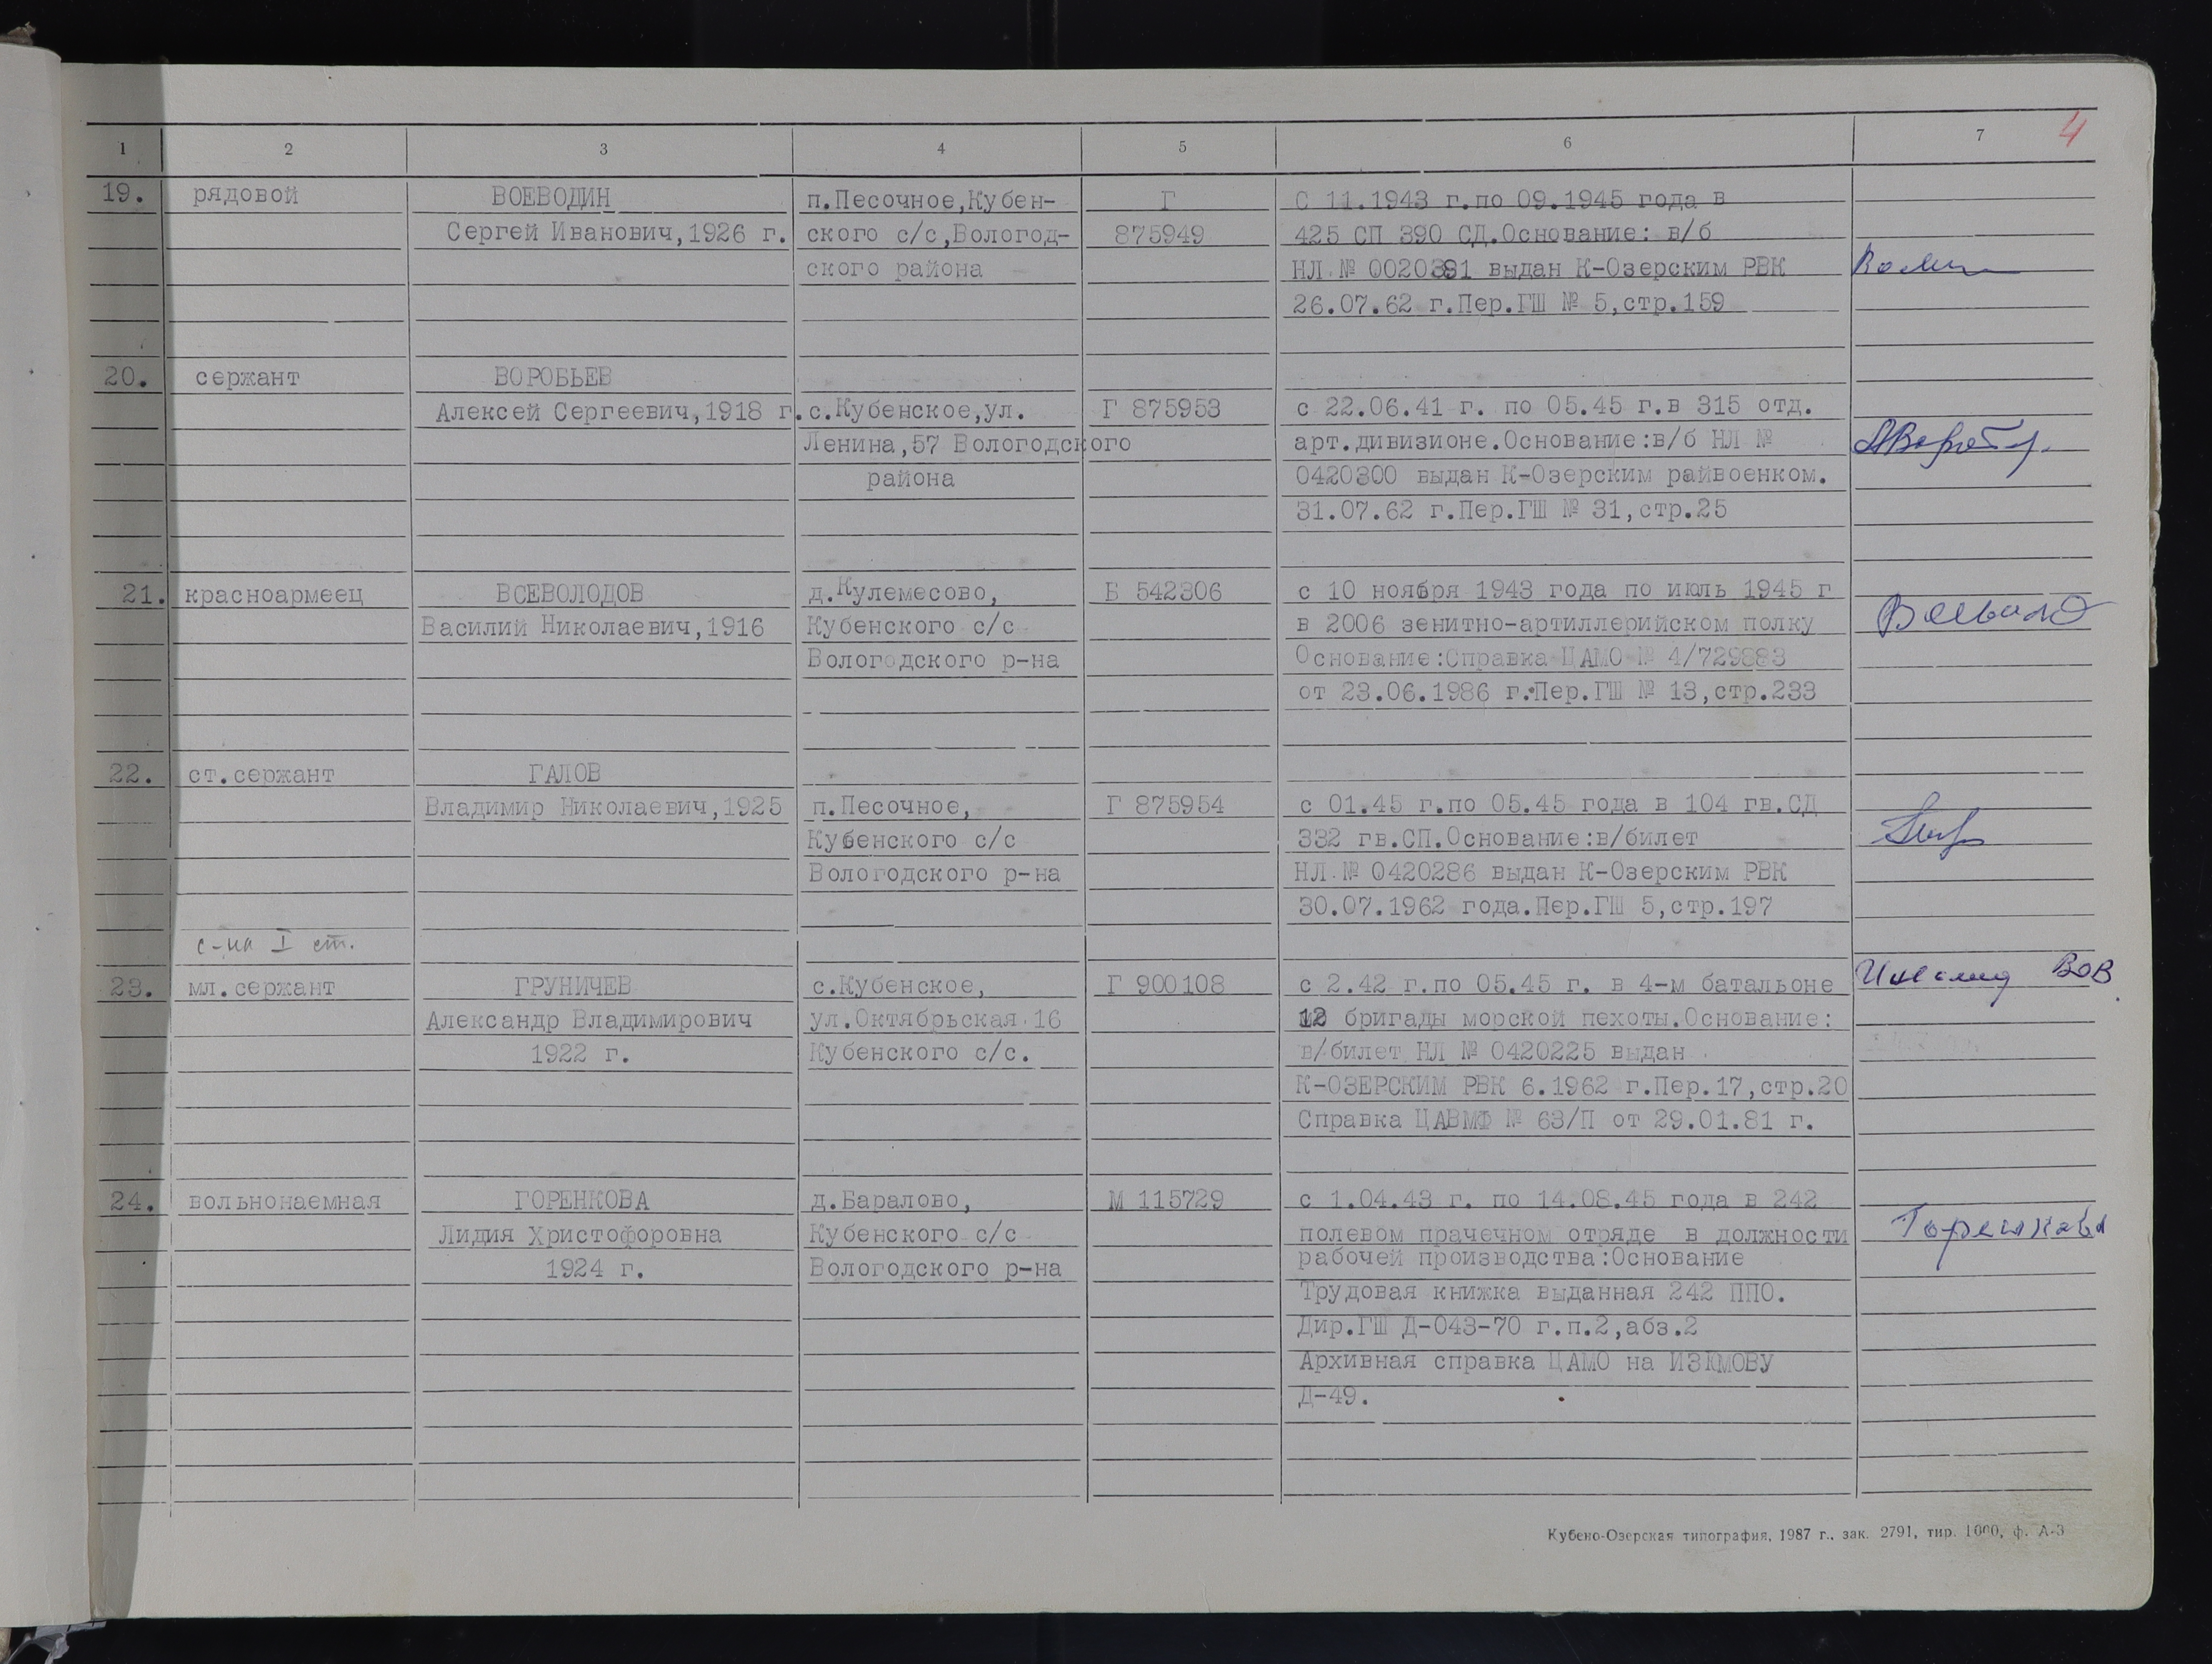 4
1 2 3 4 5 6 7
19. рядовой ВОЕВОДИН п.Песочное,Кубен- Г С 11.1943 г.по 09.1945 года в
Сергей Иванович,1926 г. ского с/с,Вологод- 875949 425 СП 390 СД.Основание: в/б
ского района НЛ № 0020391 выдан К-Озерским РВК
26.07.62 г.Пер.ГШ № 5,стр.159
20. сержант ВОРОБЬЕВ
Алексей Сергеевич,1918 г. с.Кубенское,ул. Г 875953 с 22.06.41 г. по 05.45 г.в 315 отд.
Ленина,57 Вологодского арт.дивизионе.Основание:в/б НЛ №
района 0420300 выдан К-Озерским райвоенком.
31.07.62 г.Пер.ГШ № 31,стр.25
21. красноармеец ВСЕВОЛОДОВ д.Кулемесово, Б 542306 с 10 ноября 1943 года по июль 1945 г
Василий Николаевич,1916 Кубенского с/с в 2006 зенитно-артиллерийском полку
Вологодского р-на Основание:Справка ЦАМО № 4/729883
от 23.06.1986 г.Пер.ГШ № 13,стр.233
22. ст.сержант ГАЛОВ
Владимир Николаевич,1925 п.Песочное, Г 875954 с 01.45 г.по 05.45 года в 104 гв.СД
Кубенского с/с 332 гв.СП.Основание:в/билет
Вологодского р-на НЛ № 0420286 выдан К-Озерским РВК
30.07.1962 года.Пер.ГШ 5,стр.197
с-на I ст.
23. мл.сержант ГРУНИЧЕВ с.Кубенское, Г 900108 с 2.42 г.по 05.45 г. в 4-м батальоне Инвалид ВОВ
Александр Владимирович ул.Октябрьская 16 12 бригады морской пехоты.Основание:
1922 г. Кубенского с/с. в/билет НЛ № 0420225 выдан
К-ОЗЕРСКИМ РВК 6.1962 г.Пер.17,стр.20
Справка ЦАВМФ № 63/П от 29.01.81 г.
24. вольнонаемная ГОРЕНКОВА д.Баралово, М 115729 с 1.04.43 г. по 14.08.45 года в 242
Лидия Христофоровна Кубенского с/с полевом прачечном отряде в должности Горенкова
1924 г. Вологодского р-на рабочей производства:Основание
Трудовая книжка выданная 242 ППО.
Дир.ГШ Д-043-70 г.п.2,абз.2
Архивная справка ЦАМО на
Д-49.
Кубено-Озерская типография, 1987 г., зак. 2791, тир. 1000, ф. А-3